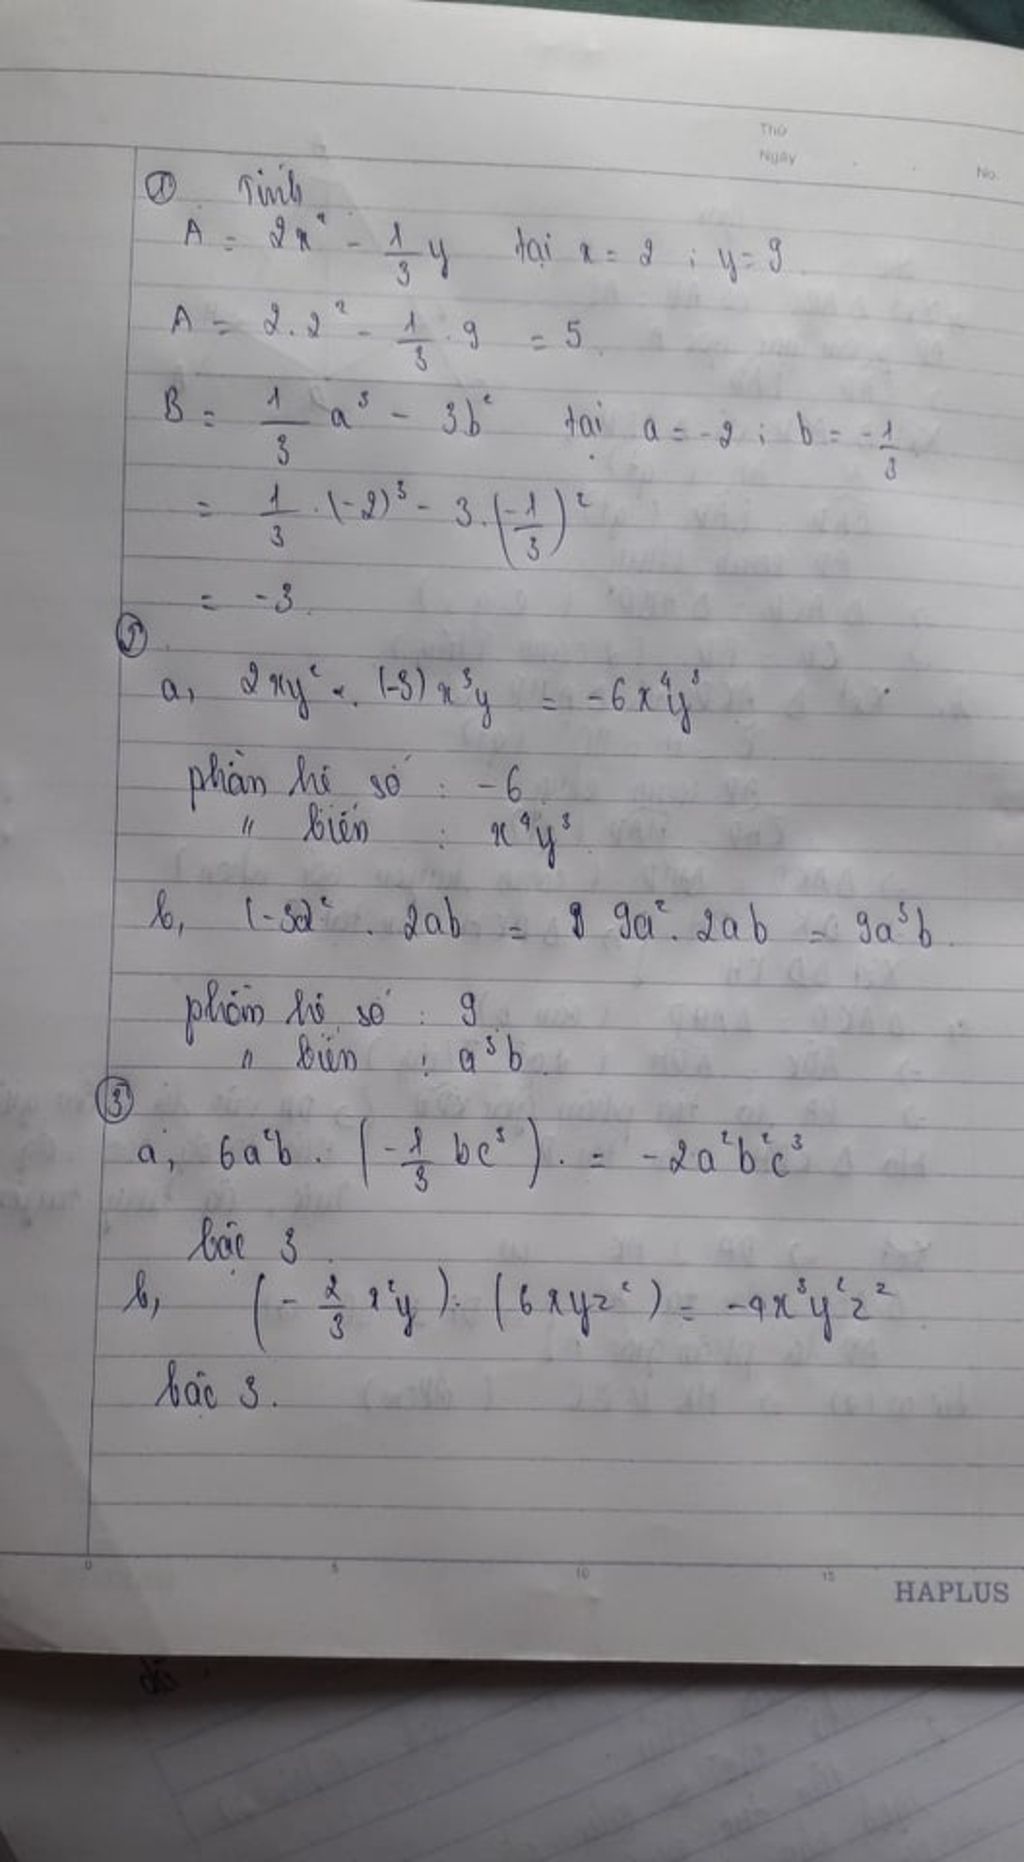 Thứ
Ngày
No.
① Tính
A = 2x² - 1/3 y tại x = 2 ; y = 9
A = 2.2² - 1/3 . 9 = 5.
B = 1/3 a³ - 3b² tại a = -2 ; b = -1/3
= 1/3 . (-2)³ - 3.(-1/3)²
= -3.
②
a, 2xy² . (-3)x³y = -6x⁴y³
phần hê số : -6
" biến : x⁴y³.
b, (-3a)² . 2ab = 9a² . 2ab = 9a³b.
phần hê số : 9
" biến : a³b.
③
a, 6a²b . (-1/3 bc³). = -2a²b²c³
bậc 3.
b, (-2/3 x²y).(6xyz²) = -4x³y²z²
bậc 3.
0 5 10 15
HAPLUS